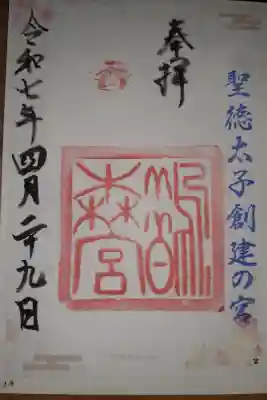 聖徳太子創建の宮
奉拝
鵲森宮
令和七年四月二十九日